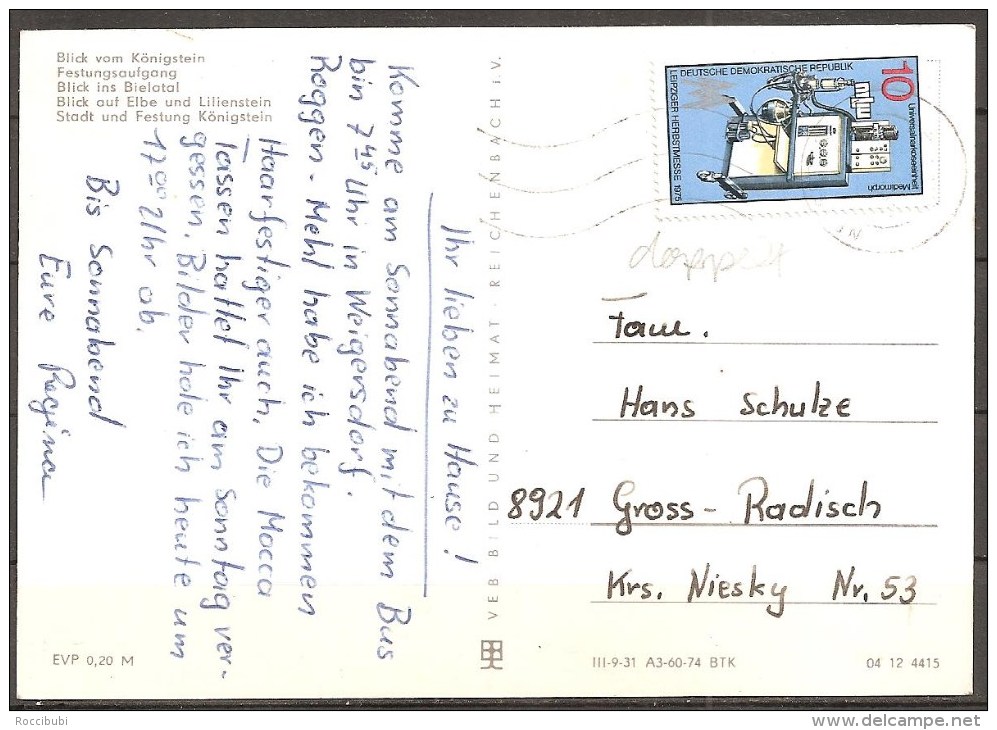 Blick vom Königstein
Festungsaufgang
Blick ins Bielatal
Blick auf Elbe und Lilienstein
Stadt und Festung Königstein
Ihr lieben zu Hause!
Komme am Sonnabend mit dem Bus
bin 7⁴⁵ Uhr in Weigersdorf.
Roggen-Mehl habe ich bekommen
Haarfestiger auch. Die Mocca
Tassen hattet Ihr am Sonntag ver-
gessen. Bilder hole ich heute um
17⁰⁰ Uhr ab.
Bis Sonnabend
Eure Regina
EVP 0,20 M
VEB BILD UND HEIMAT · REICHENBACH i. V.
DEUTSCHE DEMOKRATISCHE REPUBLIK
LEIPZIGER HERBSTMESSE 1975
10
Universalnarkoseeinheit Medimorph
doppelt
Fam.
Hans Schulze
8921 Gross-Radisch
Krs. Niesky Nr. 53
III-9-31 A3-60-74 BTK
04 12 4415
Roccibubi
www.delcampe.net